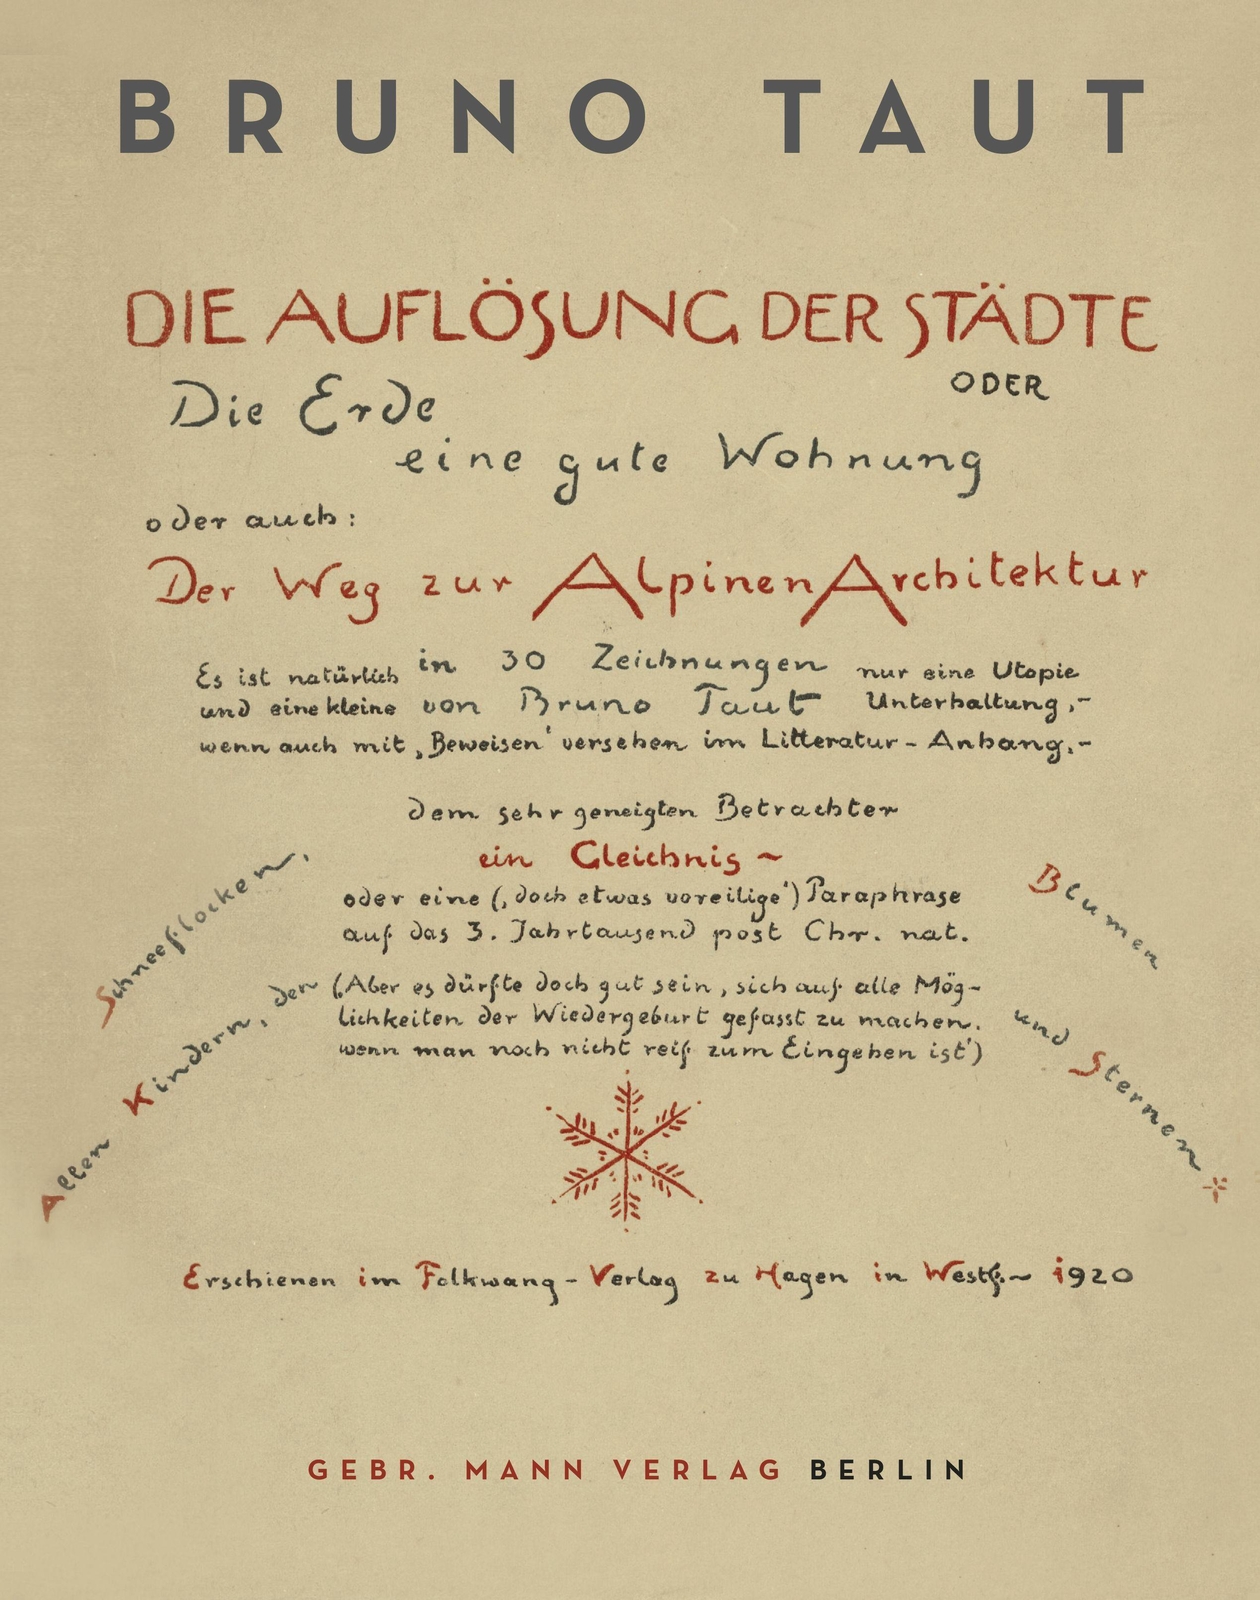 BRUNO TAUT
DIE AUFLÖSUNG DER STÄDTE
ODER
Die Erde
eine gute Wohnung
oder auch:
Der Weg zur Alpinen Architektur
in 30 Zeichnungen
von Bruno Taut
Es ist natürlich nur eine Utopie
und eine kleine Unterhaltung,-
wenn auch mit ‚Beweisen' versehen im Litteratur-Anhang,-
dem sehr geneigten Betrachter
ein Gleichnis ~
oder eine (‚doch etwas voreilige') Paraphrase
auf das 3. Jahrtausend post Chr. nat.
(‚Aber es dürfte doch gut sein, sich auf alle Mög-
lichkeiten der Wiedergeburt gefasst zu machen.
wenn man noch nicht reif zum Eingehen ist')
Allen Kindern, den
Schneeflocken,
Blumen
und Sternen
Erschienen im Folkwang-Verlag zu Hagen in Westf.~ 1920
GEBR. MANN VERLAG BERLIN